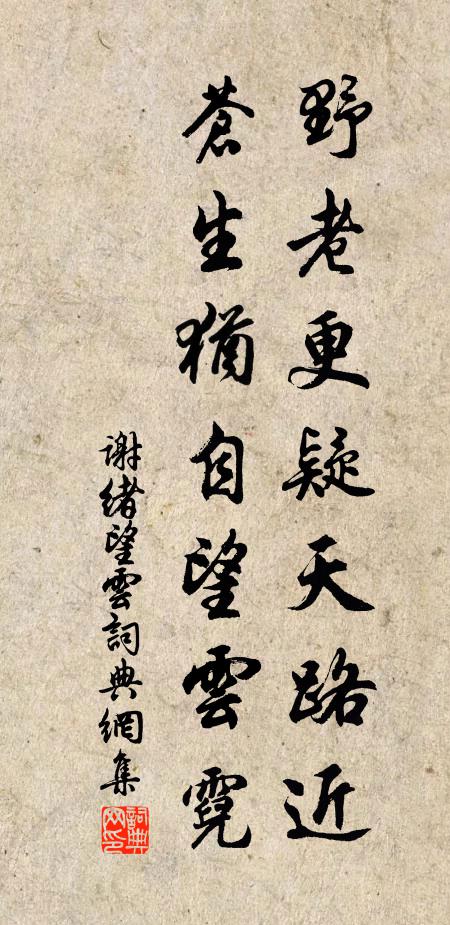 野老更疑天路近
蒼生猶自望雲霓
謝緒望雲詞典網集
詞典网印